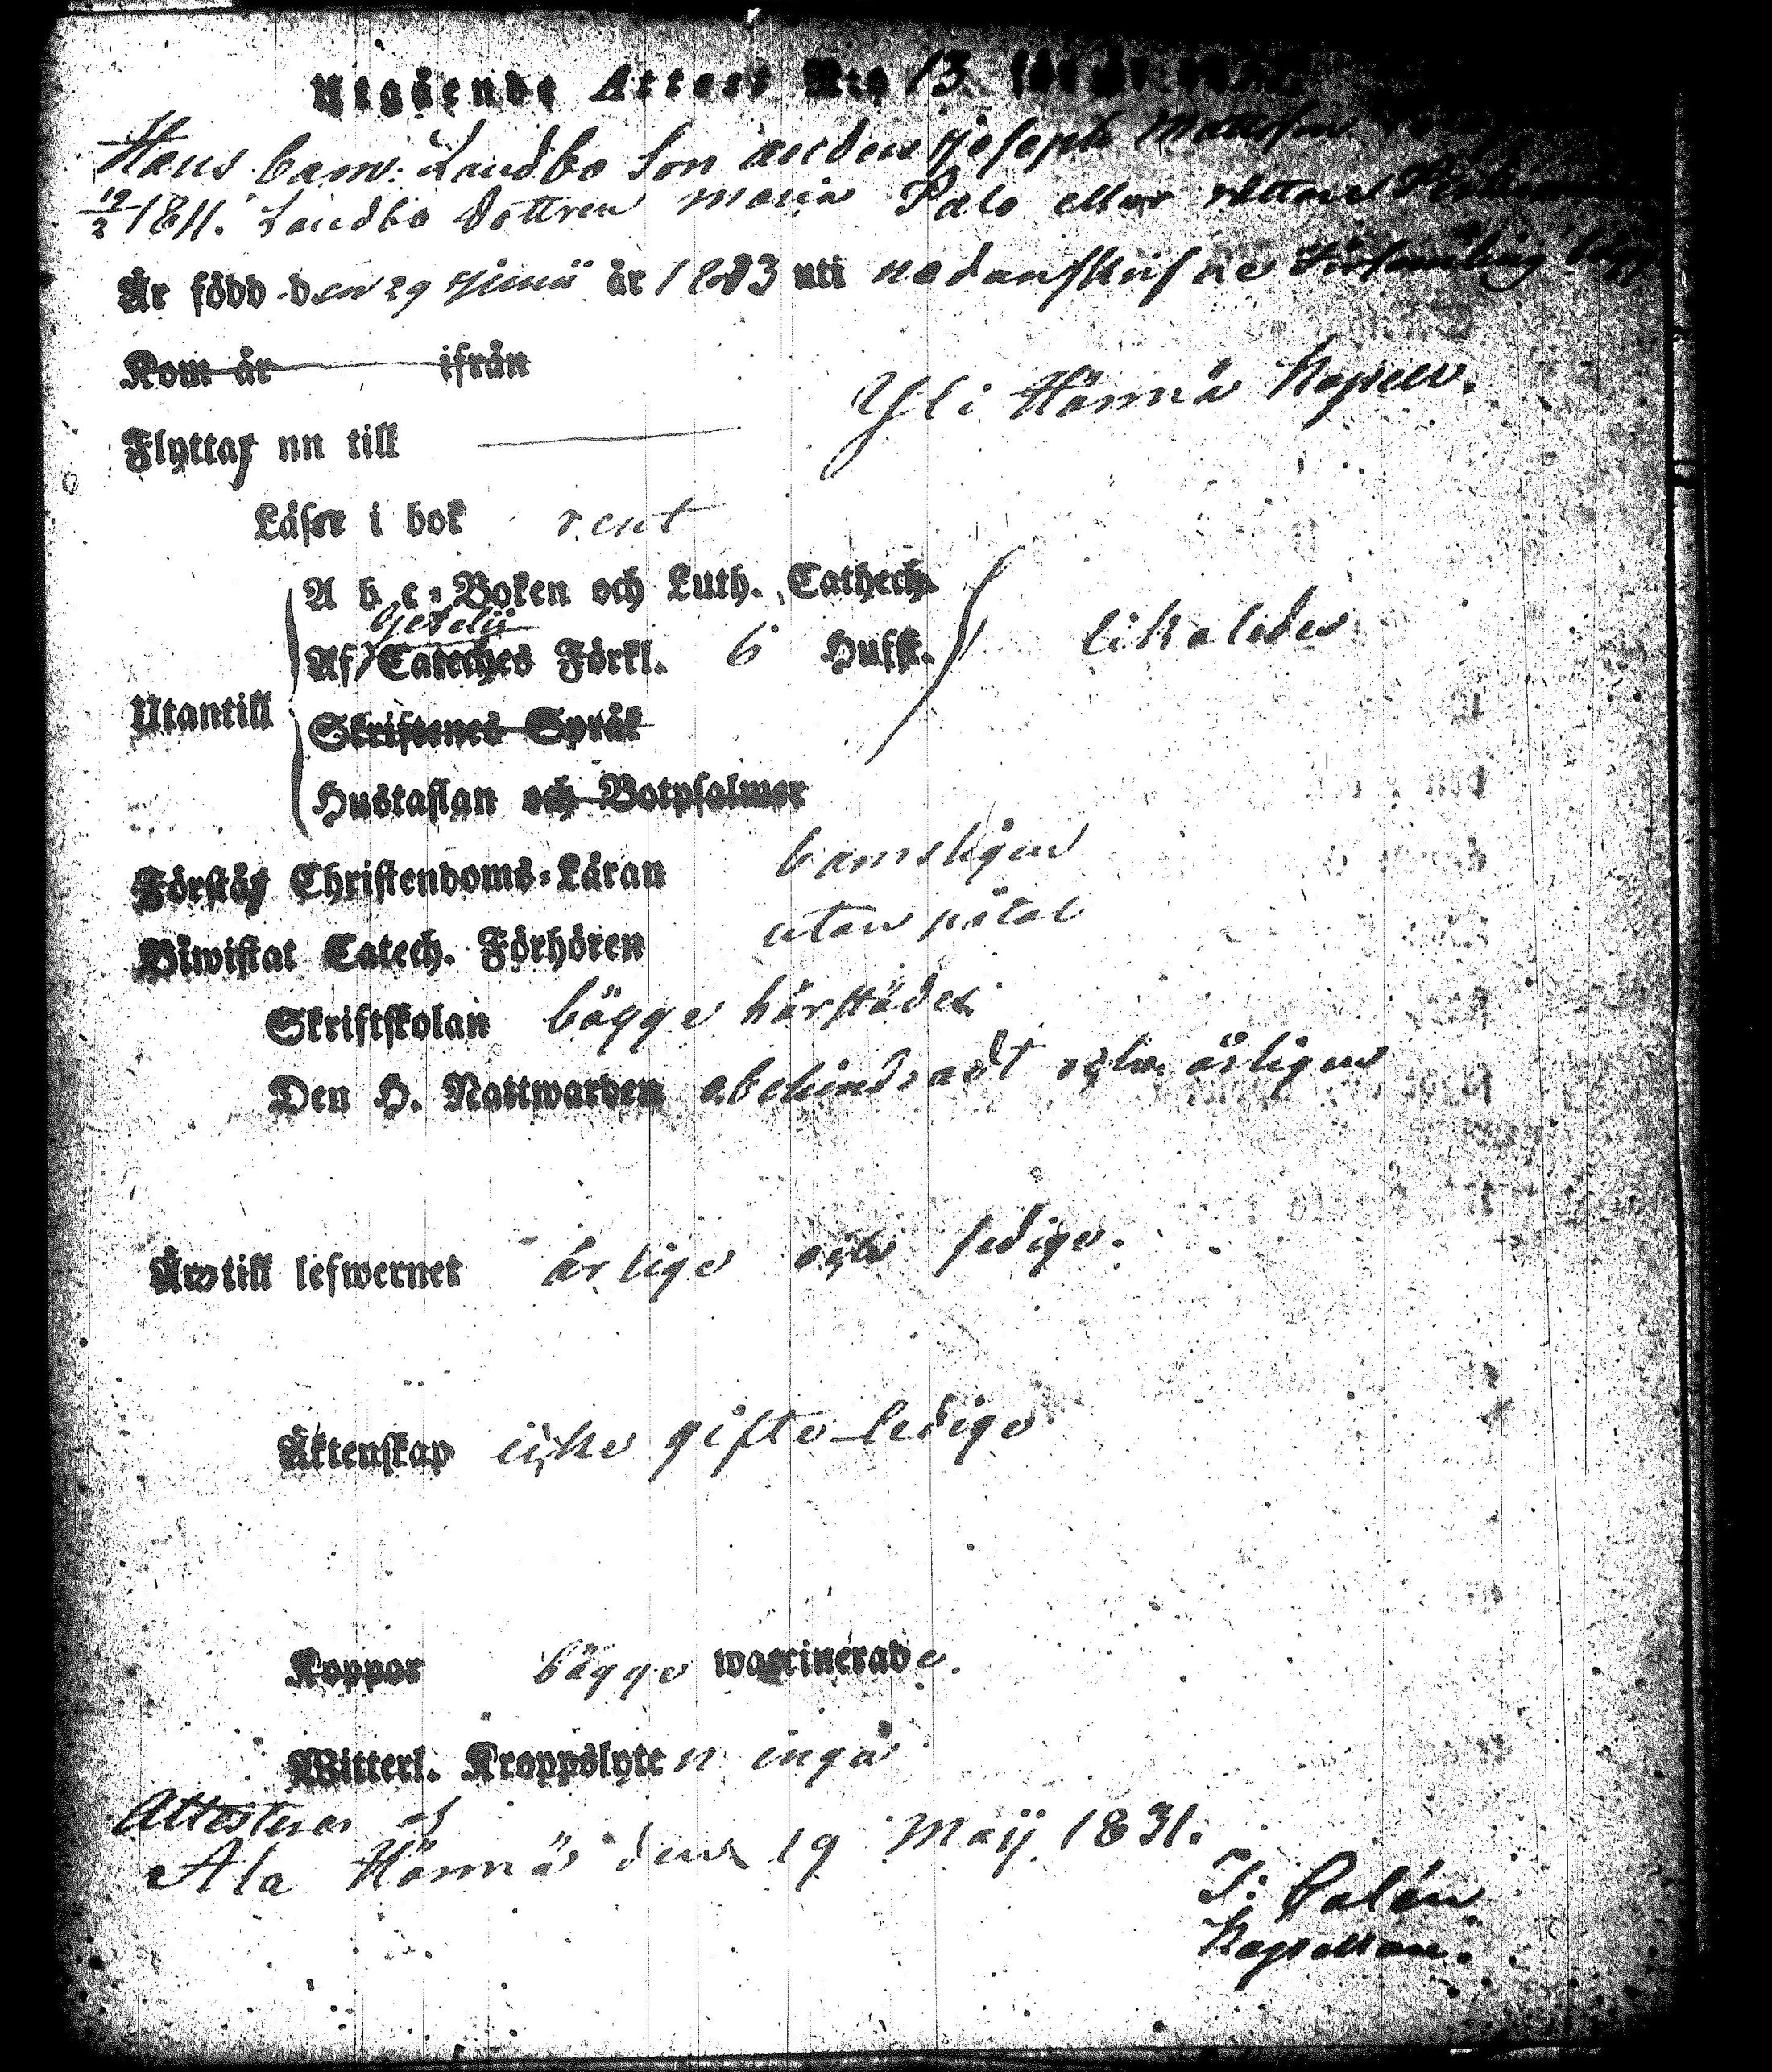 Utgående Attest N:o 13. för år
Hans barn: Landbo Son anden Joseph Mattsson
19/2 1811. Landbo dottren Maria Palo eller rättare
Är född den 29 Junii år 1803 uti nedanskrifne Församling bägge
Kom år ifrån
Yli Härmä Kapell.
Flyttar nu till
Läser i bok rent
A b c-Boken och Luth. Cathech.
Gezelii
Af Cateches Förkl. 6 Hufst. likaledes
Utantill
Skriftenes Språk
Hustaflan och Botpsalmer
Förstår Christendoms-Läran barnsligen
Biwistat Catech. Förhören utan påtal
Skriftskolan bägge härstädes
Den H. Nattwarden obehindradt och årligen
Äro till lefwernet ärlige och sedige.
Äktenskap icke gifte ledige
Koppor bägge waccinerade.
Witterl. Kroppslyten inga
Attesterar af
Ala Härmä den 19 Maij 1831.
J: Dalén
Kapellan.